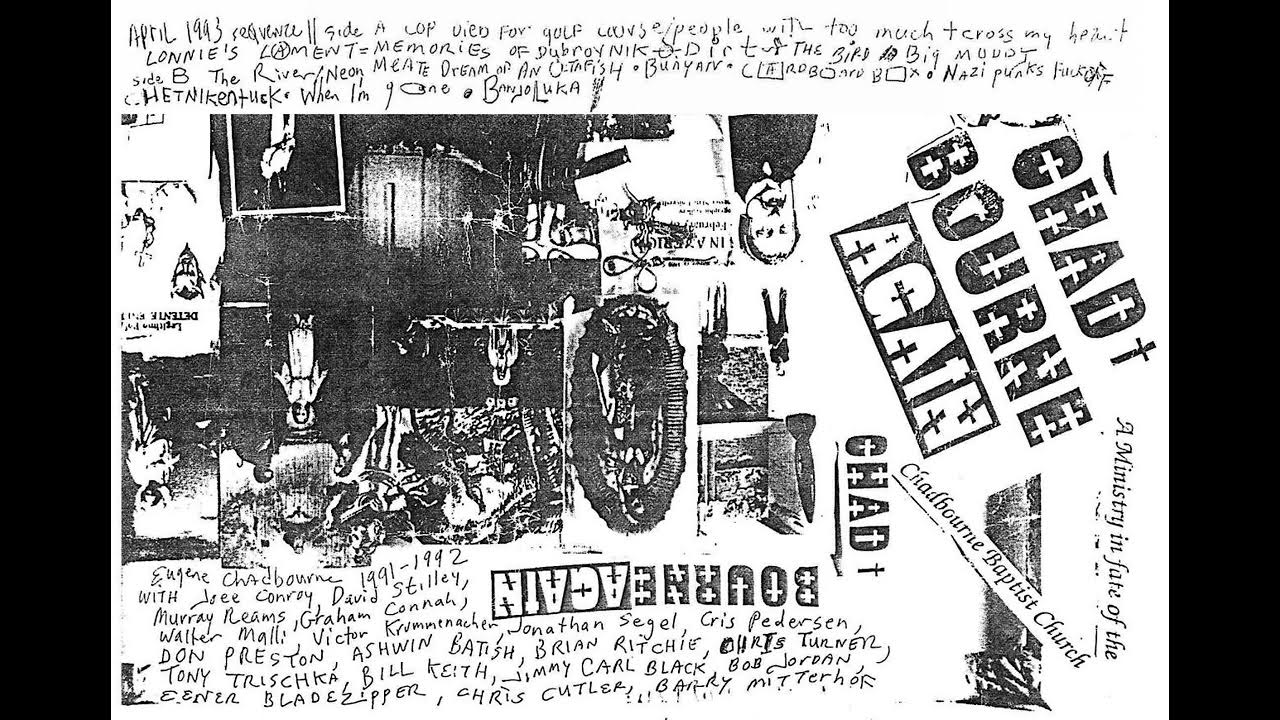 APRIL 1993 sequence || side A COP DIED FOR GOLF COURSE/people with too much + cross my heart
LONNIE'S LAMENT = MEMORIES OF DUBROVNIK Dirt THE BIRD Big MUDDY
side B The River/Neon MEATE DREAM OF AN OCTAFISH • BUNYAN • CARDBOARD BOX • NAZI punks FUCK OFF
CHETNIKentuck • When I'm gone • BANJOLUKA
CHAD
BOURNE
AGAIN
IN AMERICA
February
DETENTE
CHAD
BOURNE AGAIN
A Ministry in fake of the
Chadbourne Baptist Church
Eugene Chadbourne 1991-1992
WITH Joee Conroy, David Stilley,
Murray Reams, Graham Connah,
Walter Malli, Victor Krummenacher, Jonathan Segel, Cris Pedersen,
DON PRESTON, ASHWIN BATISH, BRIAN RITCHIE, CHRIS TURNER,
TONY TRISCHKA, BILL KEITH, JIMMY CARL BLACK, BOB JORDAN,
EENER BLADEZIPPER, CHRIS CUTLER, BARRY MITTERHOF